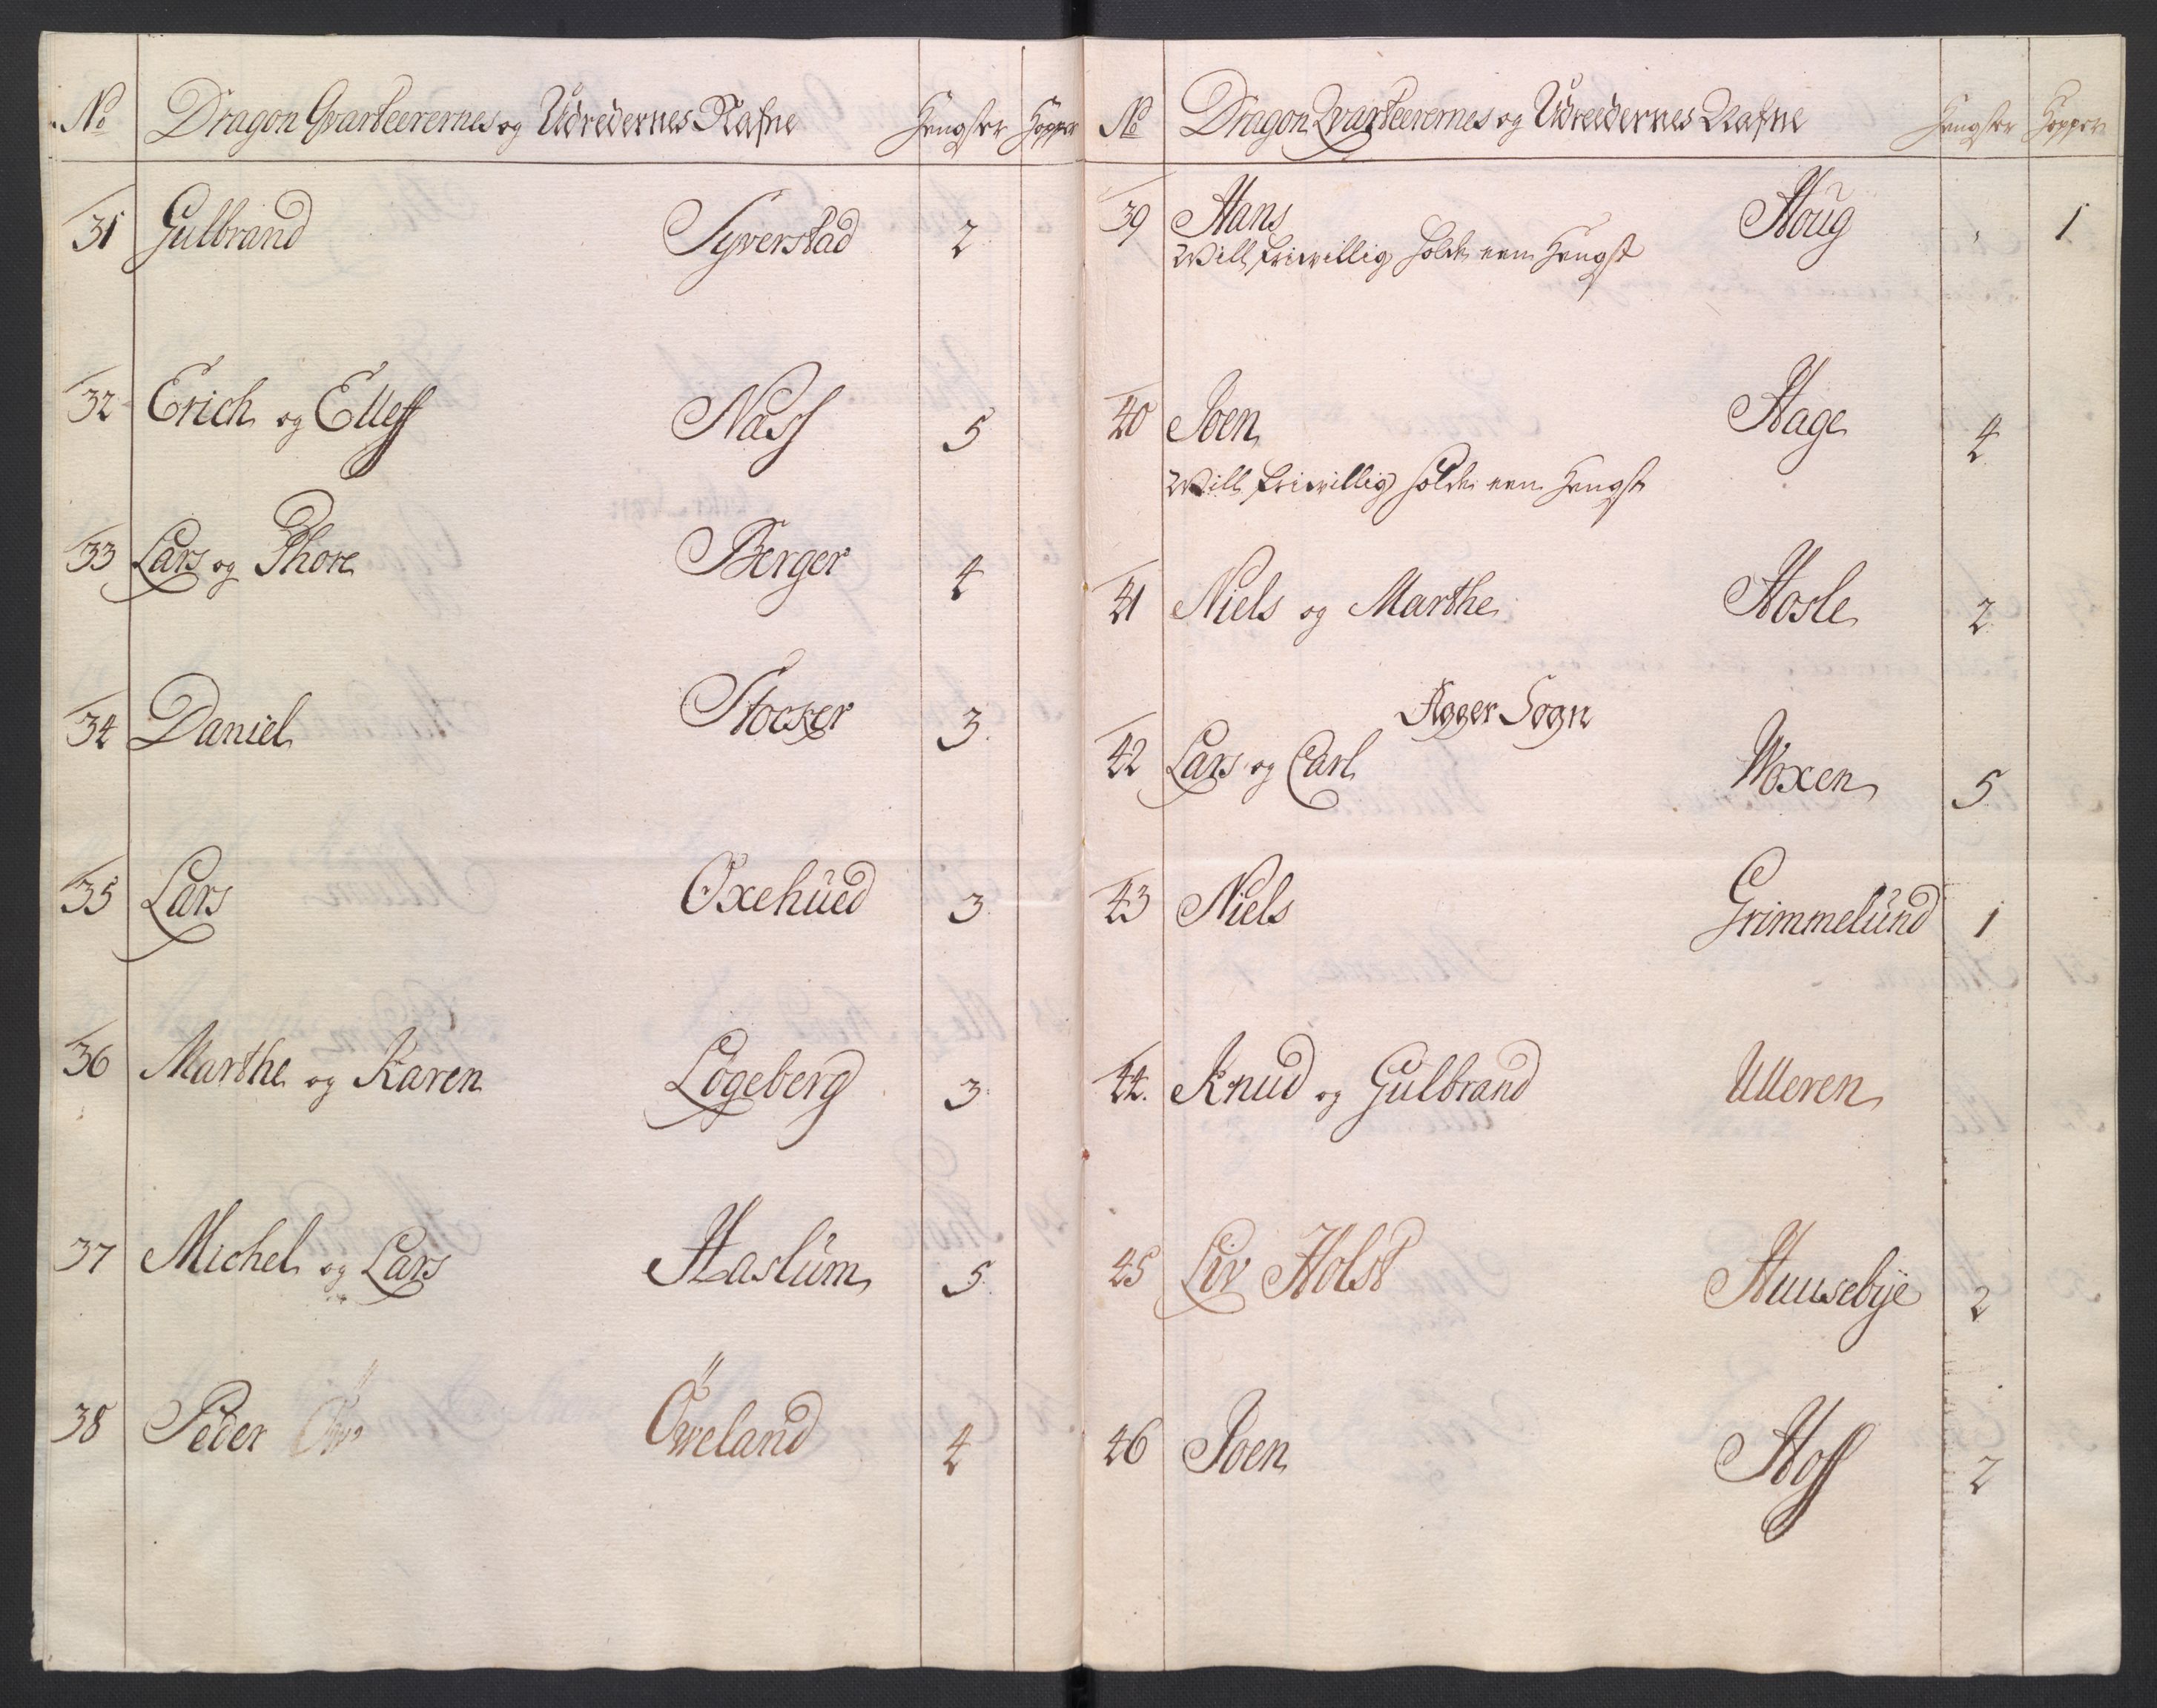 No Dragon Qvarteerernes og Udredernes Nafne Hengster Hopper
31 Gulbrand Syverstad 2
32 Erich og Elleff Næss 5
33 Lars og Thore Berger 4
34 Daniel Stocker 3.
35 Lars Oxehüed 3
36 Marthe og Karen Løgeberg 3
37 Michel og Lars Haslüm 5
38 Peder Öweland 4
No Dragon Qvarteerernes og Udreedernes Nafne Hengster Hopper
39 Hans Houg 1
Will friwillig holde een Hengst
40 Joen Hage 4
Will friwillig holde een Hengst
41 Niels og Marthe Hosle 2
Agger Sogn
42 Lars og Carl Woxen 5
43 Niels Grimmelünd 1
44. Knud og Gulbrand Ulleren
45 Liv Holst Huusebÿe 2
46 Joen Hoff 2